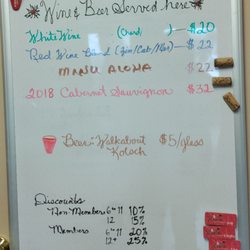 Wine & Beer Served here
White Wine (Chard ) → $20
Red Wine Blend (Zin/Cab/Mer) → $22
MANU ALOHA $22
2018 Cabernet Sauvignon $32
Beer - Walkabout $5/glass
Kolsch
Discounts
Non Members 6-11 10%
12 15%
Members 6-11 20%
12+ 25%